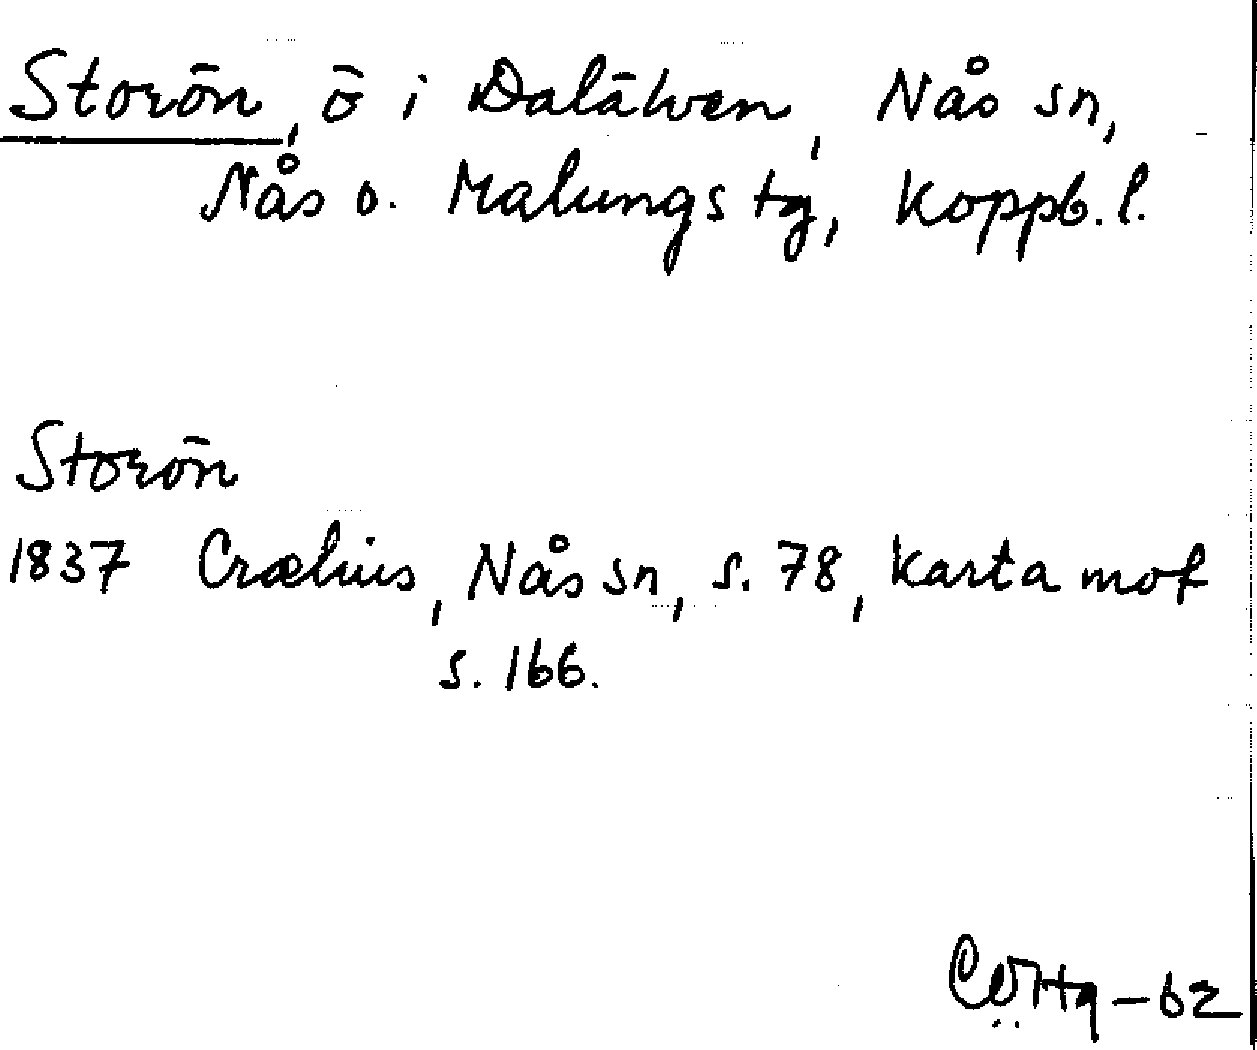 Storön, ö i Dalälven, Nås sn,
Nås o. Malungs tg, Koppb. l.
Storön
1837 Crælius, Nås sn, s. 78, Karta mot
s. 166.
-62